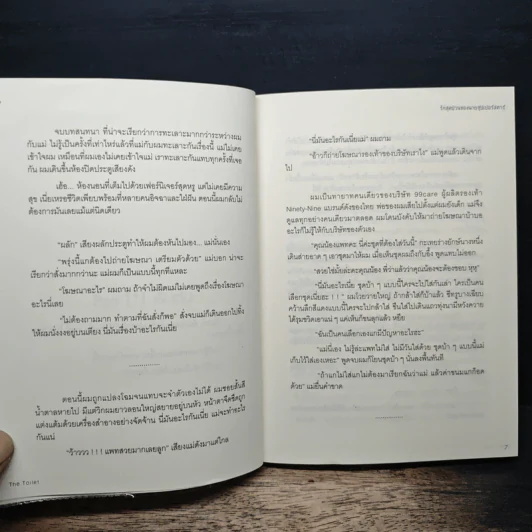 จบบทสนทนา ที่น่าจะเรียกว่าการทะเลาะมากกว่าระหว่างผม
กับแม่ ไม่รู้เป็นครั้งที่เท่าไหร่แล้วที่แม่กับผมทะเลาะกันเรื่องนี้ แม่ไม่เคย
เข้าใจผม เหมือนที่ผมเองไม่เคยเข้าใจแม่ เราทะเลาะกันแทบทุกครั้งที่เจอ
กัน ผมเดินขึ้นห้องปิดประตูเสียงดัง
เฮ้อ... ห้องนอนที่เต็มไปด้วยเฟอร์นิเจอร์สุดหรู แต่ไม่เคยมีความ
สุข เนี่ยเหรอชีวิตเพียบพร้อมที่หลายคนอิจฉาและใฝ่ฝัน ตอนนี้ผมกลับไม่
ต้องการมันเลยแม้แต่นิดเดียว
"ผลัก" เสียงผลักประตูทำให้ผมต้องหันไปมอง... แม่นั่นเอง
"พรุ่งนี้แกต้องไปถ่ายโฆษณา เตรียมตัวด้วย" แม่บอก น่าจะ
เรียกว่าสั่งมากกว่านะ แม่ผมก็เป็นแบบนี้ทุกทีแหละ
"โฆษณาอะไร" ผมถาม ถ้าจำไม่ผิดแม่ไม่เคยพูดถึงเรื่องโฆษณา
อะไรนี่เลย
"ไม่ต้องถามมาก ทำตามที่ฉันสั่งก็พอ" สั่งจบแม่ก็เดินออกไปทิ้ง
ให้ผมนั่งงงอยู่บนเตียง นี่มันเรื่องบ้าอะไรกันเนี่ย
..............
ตอนนี้ผมถูกแปลงโฉมจนแทบจะจำตัวเองไม่ได้ ผมซอยสั้นสี
น้ำตาลหายไป มีแต่วิกผมยาวลอนใหญ่สยายอยู่บนหัว หน้าตาจืดชืดถูก
แต่งแต้มด้วยเครื่องสำอางอย่างจัดจ้าน นี่มันอะไรกันเนี่ย แม่จะทำอะไร
กันแน่
"ว้าววว !!! แพทสวยมากเลยลูก" เสียงแม่ดังมาแต่ไกล
The Toilet
"นี่มันอะไรกันเนี่ยแม่" ผมถาม
"อ้าวก็ถ่ายโฆษณารองเท้าของบริษัทเราไง" แม่พูดแล้วเดินจาก
ไป
ผมเป็นทายาทคนเดียวของบริษัท 99care ผู้ผลิตรองเท้า
Ninety-Nine แบรนด์ดังของไทย พ่อของผมเสียไปตั้งแต่ผมยังเด็ก แม่จึง
ดูแลทุกอย่างคนเดียวมาตลอด ผมโดนบังคับให้มาถ่ายโฆษณาบ้าบอ
อะไรก็ไม่รู้ให้กับบริษัทของตัวเอง
"คุณน้องแพทคะ นี่ค่ะชุดที่ต้องใส่วันนี้" กะเทยร่างยักษ์นางหนึ่ง
เดินส่ายอาด ๆ เอาชุดมาให้ผม เมื่อเห็นชุดผมถึงกับอึ้ง พูดแทบไม่ออก
"สวยใช่มั้ยล่ะคะคุณน้อง พี่ว่าแล้วว่าคุณน้องจะต้องชอบ หุหุ"
"นี่มันอะไรเนี่ย ชุดบ้า ๆ แบบนี้ใครจะไปใส่กันเล่า ใครเป็นคน
เลือกชุดเนี่ยฮะ !!!" ผมโวยวายใหญ่ ถ้ากล้าใส่ก็บ้าแล้ว ชีทรูบางเฉียบ
คว้านลึกสีแดงแบบนี้ใครจะไปกล้าใส่ ขืนใส่ไปเดินแถวทุ่งนามีหวังควาย
ได้รุมขวิดเอาแน่ ๆ แค่เห็นก็ขนลุกแล้ว หยึย
"ฉันเป็นคนเลือกเองแกมีปัญหาอะไรฮะ"
"แม่นี่เอง ไม่รู้ล่ะแพทไม่ใส่ ไม่มีวันใส่ด้วย ชุดบ้า ๆ แบบนี้แม่
เก็บไว้ใส่เองเหอะ" พูดจบผมก็โยนชุดบ้า ๆ นั่นลงพื้นทันที
"ถ้าแกไม่ใส่แกไม่ต้องมาเรียกฉันว่าแม่ แล้วค่าขนมแกก็อด
ด้วย" แม่ยื่นคำขาด
7